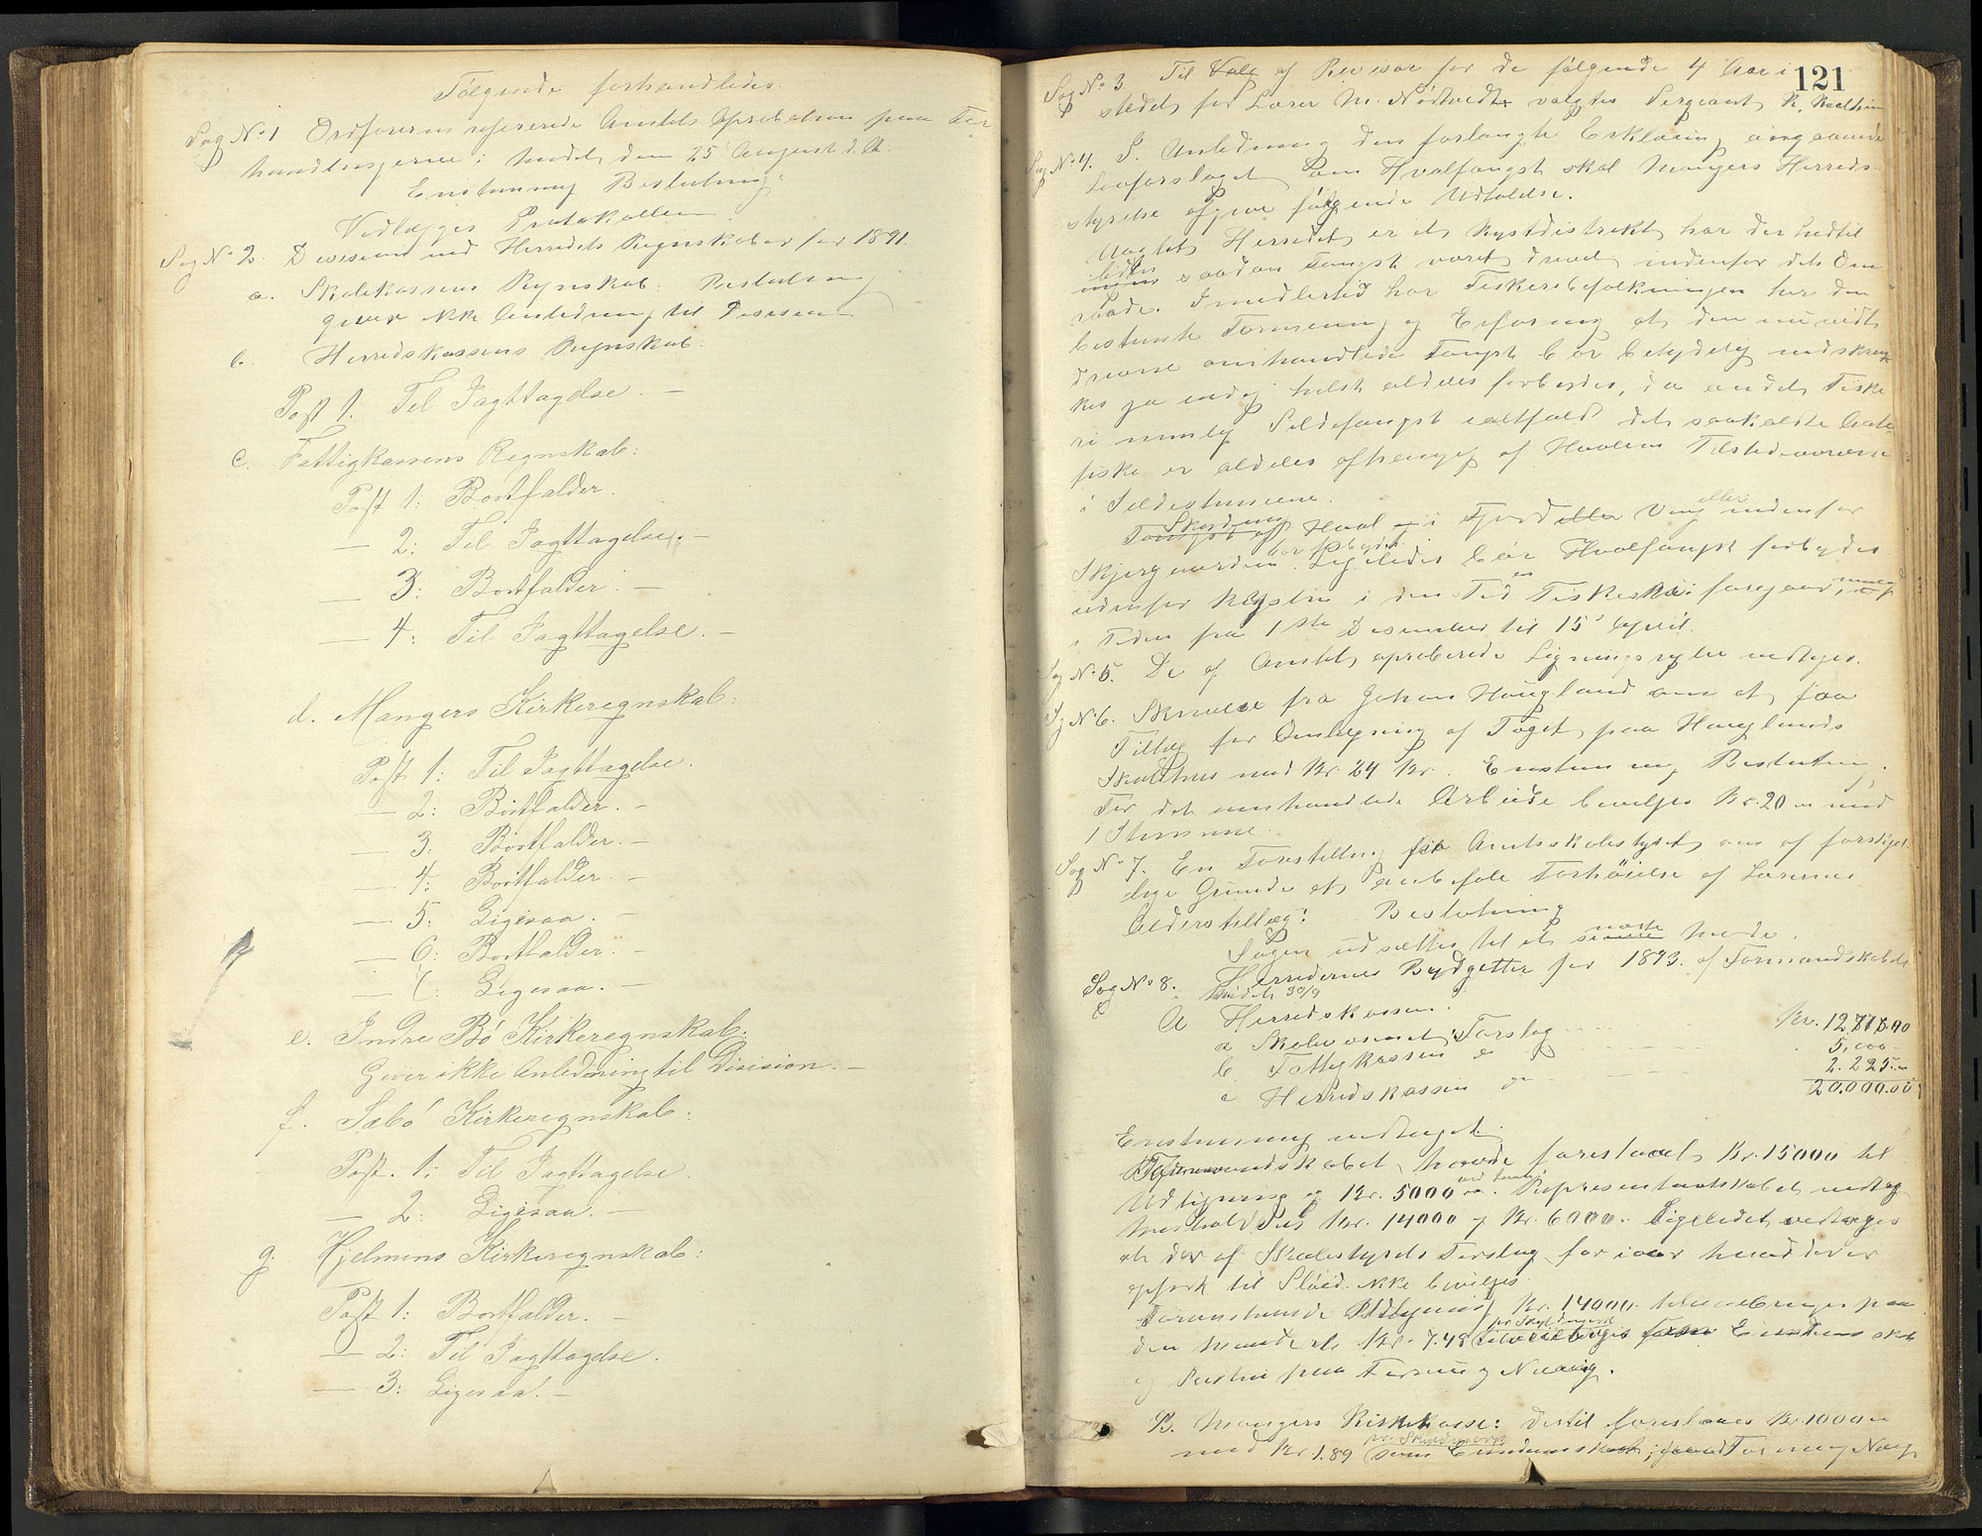 Følgende forhandledes.
Sag No 1 Ordføreren refererede Amtets Aprobation paa For-
handlingerne i mødet den 25 August d. A.
Enstemmig Beslutning:
Vedlægges Protokollen.
Sag No 2. Desision ved Herredets Regnskaber for 1891.
a. Skolekassens Regnskab: Beslutning
giver ikke Anledning til Desision
b. Herredskassens Regnskab:
Post 1. Til Iagttagelse. —
c. Fattigkassens Regnskab:
Post 1: Bortfalder.
— 2: Til Iagttagelse. —
— 3: Bortfalder. —
— 4: Til Iagttagelse. —
d. Mangers Kirkeregnskab:
Post 1: Til Iagttagelse.
— 2: Bortfalder. —
— 3. Bortfalder. —
— 4: Bortfalder. —
— 5. Ligesaa. —
— 6: Bortfalder. —
— 7. Ligesaa. —
e. Indre Bö Kirkeregnskab:
Giver ikke Anledning til Desision. —
f. Sæbö Kirkeregnskab:
Post. 1: Til Iagttagelse
— 2: Ligesaa. —
g. Hjelmens Kirkeregnskab:
Post 1: Bortfalder. —
— 2: Til Iagttagelse.
— 3: Ligesaa. —
121
Sag No 3. Til Valg af Revisor for de følgende 4 Aar i
stedet for Lærer M. Nödtvedt valgtes Sergeant R.
Sag No 4. I Anledning den forlangte Erklæring angaaende
Lovforslaget om Hvalfangst skal Mangers Herreds-
styrelse afgive følgende Udtalelse.
Uagtet Herredet er et Kystdistrikt har der hidtil
liden
ingen saadan Fangst været drevet indenfor dets Om
raade. Imedlertid har Fiskeribefolkningen her den
bestemte Formening og Erfaring at den nu vidt
drevne omhandlede Fangst bør betydelig indskræn-
kes ja endog helst aldeles forbydes, da andet Fiske
ri nemlig Sildefangst ialtfald det saakaldte
fiske er aldeles afhængig af Hvalens Tilstedeværelse
i Sildestimene.
Skydning eller
Fangst af Hval i Fjord eller Vaag indenfor
bør forbydes.
Skjergaarden. Ligeledes bør Hvalfangst forbydes
udenfor Kysten i den Tid Fiskeri foregaar, nemlig
i Tiden fra 1ste Desember til 15 April.
Sag No 5. De af Amtet aproberede Ligningsregler vedtages.
Sag No 6. Skrivelse fra Johan Haugland om at faa
Tillæg for Omlægning af Taget paa Hauglands
Skolehus med Kr. 24 Kr. Enstemmig Beslutning,
For det omhandlede Arbeide bevilges Kr. 20 mod
1 Stemme.
Sag No 7. En Forestilling fra Amtsskolestyret om af forskjel
lige Grunde at anbefale Forhöielse af Lærernes
Alderstillæg: Beslutning
næste
Sagen udsættes til et senere Møde.
Sag No 8. Herredernes Bydgetter for 1893. af Formandskabets
Møde 30/9
A Herredskassen.
a Skolevæsenet Forslag Kr. 12
b Fattigkassen do 5,000
c Herredskassen do 2.225.
20.000.00
Enstemmig vedtaget.
Formandskabet havde foreslaaet Kr. 15000 til
Udligning og Kr. 5000. Repræsentantskabet vedtog
Kr. 14000 og Kr. 6000. Ligeledes vedtages
at der af Skolestyrets Forslag for iaar hvad der er
opført til Sløid ikke bevilges
Foranstaaende Udligning Kr. 14000 tilveiebringes paa
pr Skyldmark
den Maade at Kr. 7.48 tilveiebringes Eiendomsskat
og Resten paa Formue og Næring.
B. Mangers Kirkekasse: Dertil foreslaaes Kr. 1000
pr. Skyldmark
med Kr. 1.89 som Eiendomsskat, Formue og Næring